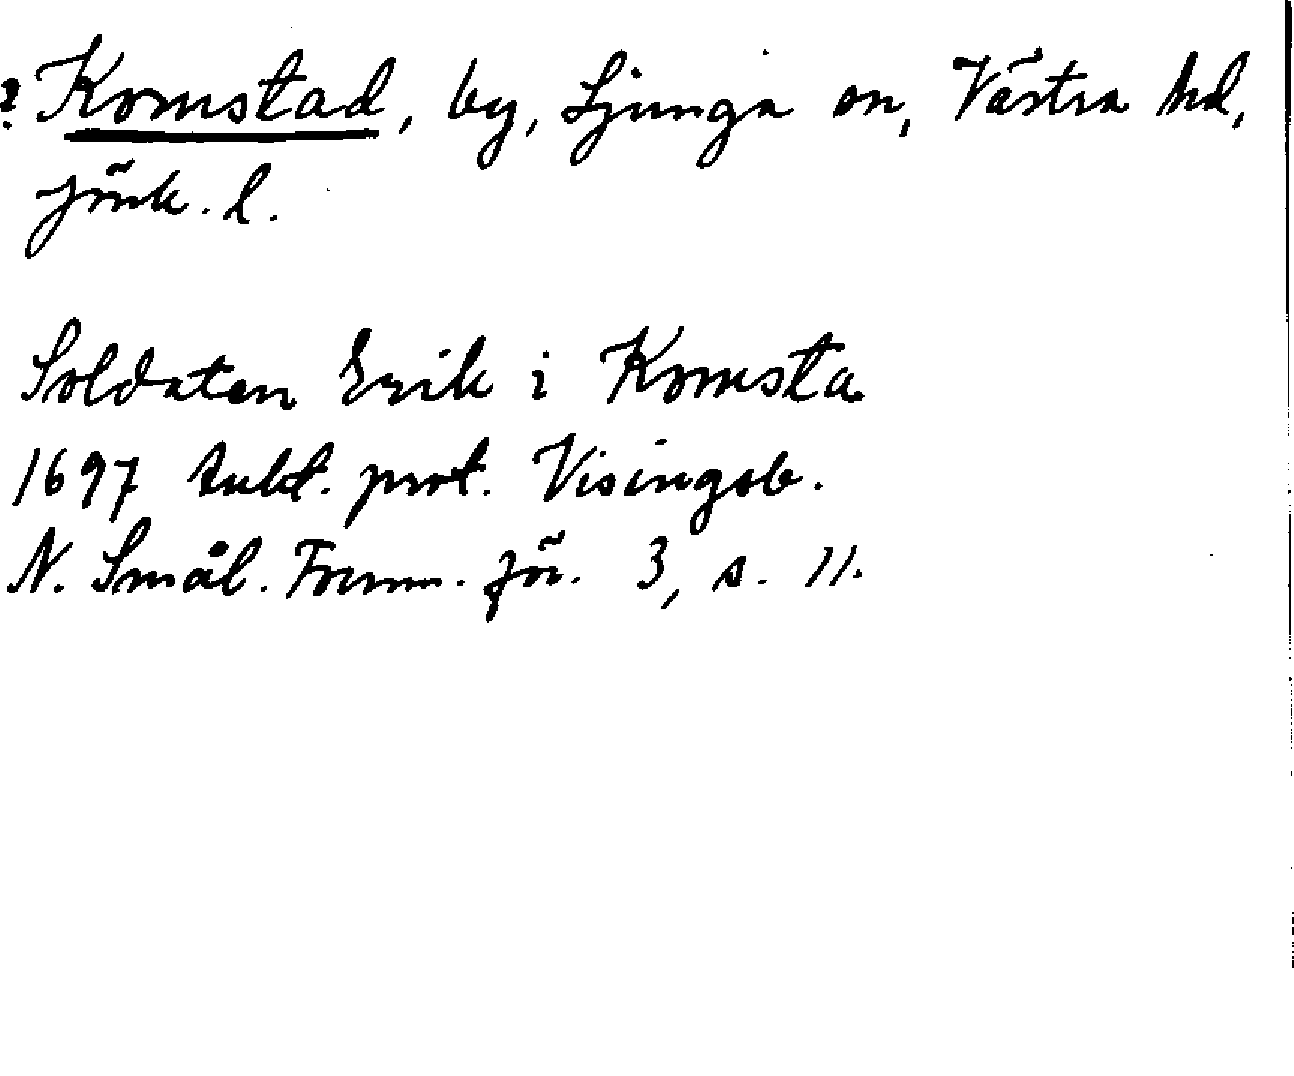 ? Komstad, by, Ljunga sn, Västra hd,
Jönk. l.
Soldaten Erik i Komsta
1697 tukt. prot. Visingsb.
N. Smål. Fornm. för. 3, s. 11.